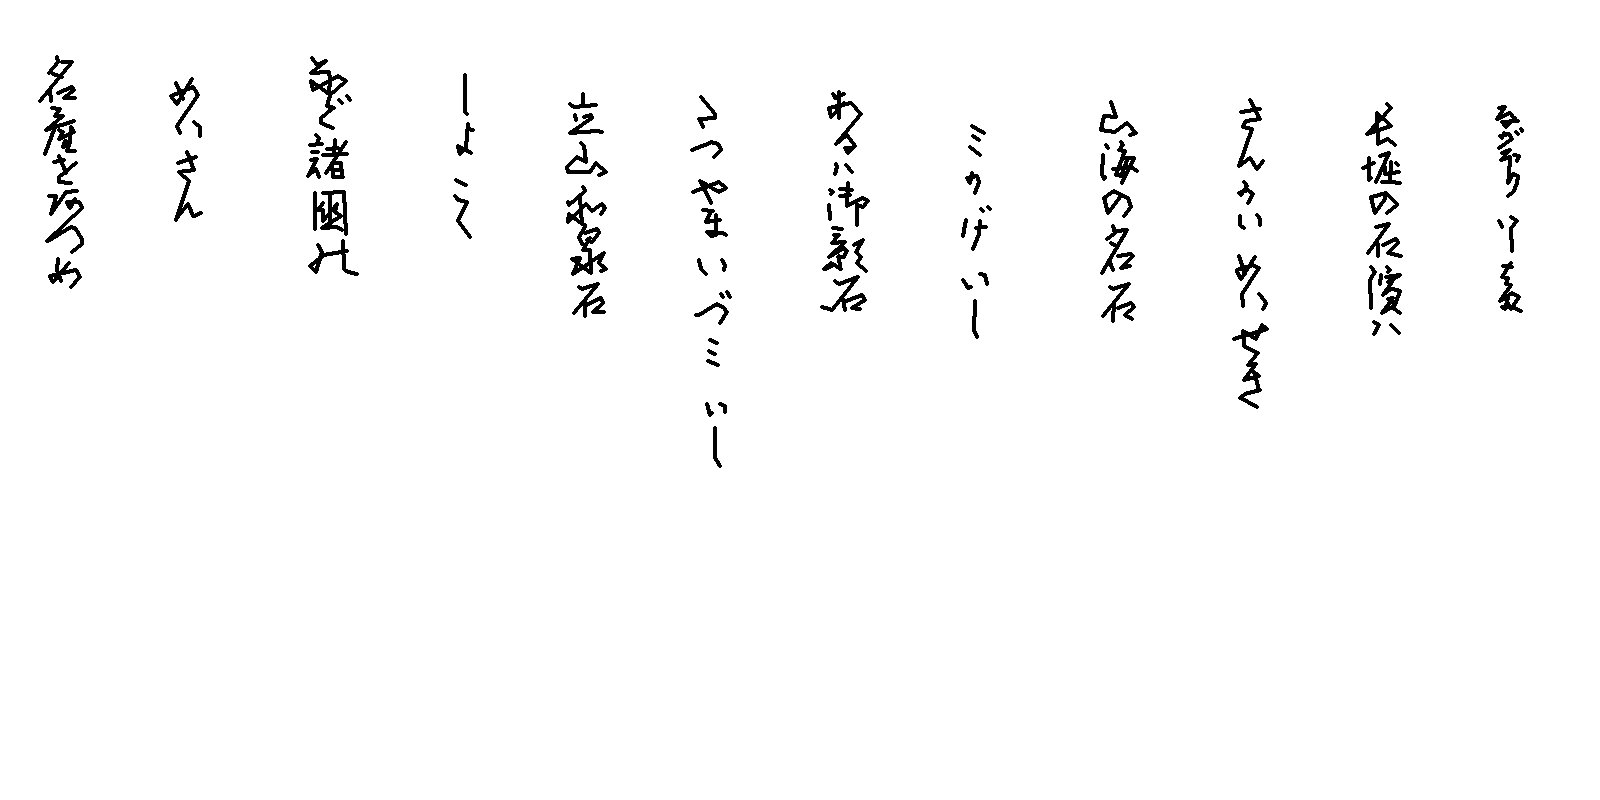 ながほりいしはま
長堀の石濱ハ
さんかいめいせき
山海の名石
ミかげいし
あるハ御影石
たつやまいづミいし
立山和泉石
しよこく
など諸國の
めいさん
名産をあつめ